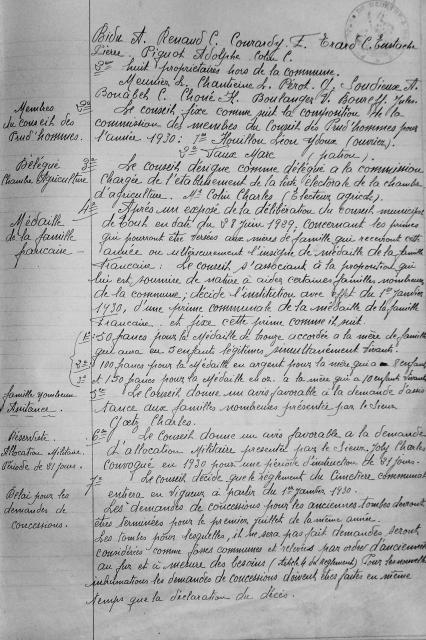 Bidu A. Renaud C. Courardy F. Erard C. Eustache
Pierre. Piquot Adolphe. Colin C.
3º huit propriétaires hors de la commune.
Meunier L. Chantreine L. Pérot. Ch. A.
C. Choné K. Boulanger V. Jules.
Membres
du conseil des
Prud'hommes.
2º Le conseil fixe comme suit la composition de la
commission des membres du Conseil des Prud'hommes pour
l'année 1930: 1º Houillon Léon (ouvrier).
2º Marc (patron).
Délégué
Chambre d'Agriculture
3º Le conseil désigne comme délégué à la commission
chargée de l'établissement de la liste électorale de la chambre
d'agriculture. Mr Colin Charles (Electeur agricole).
Médaille
de la famille
française —
4º Après un exposé de la délibération du Conseil municipal
de en date du 28 Juin 1929. concernant les primes
qui pourront être versées aux mères de famille qui recevront cette
année ou ultérieurement l'insigne de médaille de la famille
française: Le Conseil s'associant à la proposition qui
lui est soumise de nature à aider certaines familles nombreuses
de la commune; décide l'institution avec effet du 1er janvier
1930, d'une prime communale de la médaille de la famille
française. et fixe cette prime comme il suit
(1º: 50 francs pour la Médaille de bronze accordée à la mère de famille
qui aura eu 5 enfants légitimes simultanément vivants.
(2º: 100 francs pour la Médaille en argent pour la mère qui a 8 enfants
3º et 150 francs pour la Médaille en or. à la mère qui a 10 enfants vivants
famille nombreuse
Assistance.
5º Le Conseil donne un avis favorable à la demande d'assis
tance aux familles nombreuses présentée par le Sieur
Charles.
Réserviste
Allocation Militaire.
Période de 21 jours.
6º Le Conseil donne un avis favorable à la demande
d'allocation Militaire présentée par le Sieur Charles
convoqué en 1930 pour une période d'instruction de 21 jours.
Délai pour les
demandes de
concessions.
7º Le Conseil décide que le règlement du Cimetière communal
entrera en vigueur à partir du 1er janvier 1930.
Les demandes de concessions pour les anciennes tombes devront
être terminées pour le premier juillet de la même année.
Les tombes pour lesquelles, il ne sera pas fait demandes seront
considérées comme fosses communes et relevées par ordre d'ancienneté
au fur et à mesure des besoins (article 4 du Règlement) Pour les nouvelles
inhumations les demandes de concessions doivent être faites en même
temps que la déclaration du décès.